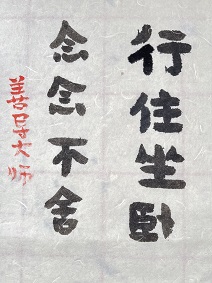 行住坐卧
念念不舍
善导大师